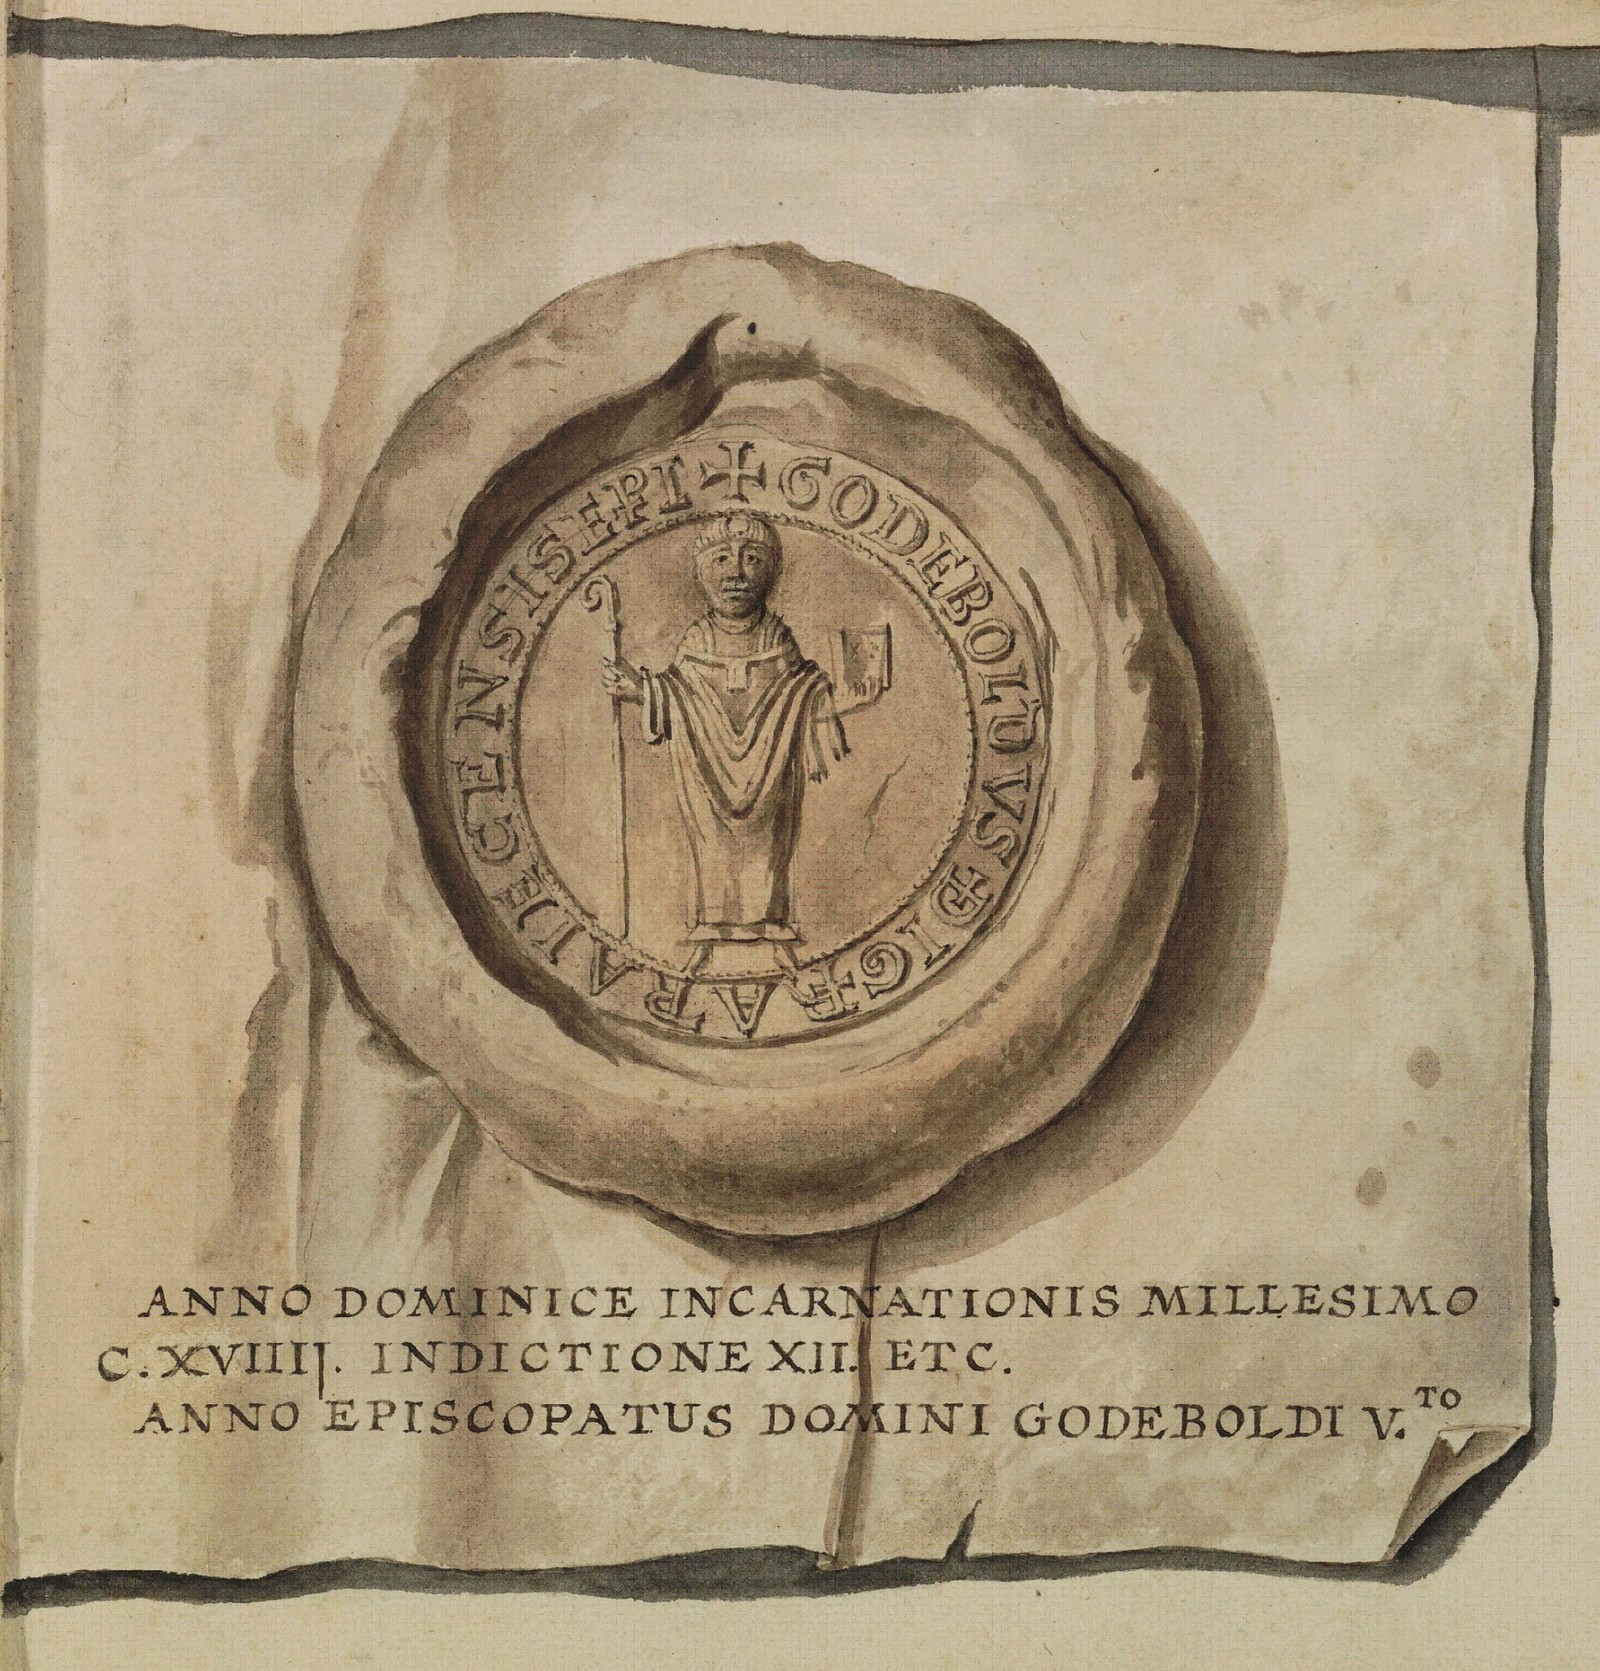 + GODEBOLDVS ĐI GRA TRAIECENSIS EPI
ANNO DOMINICE INCARNATIONIS MILLESIMO
C.XVIIIIJ. INDICTIONE XII. ETC.
ANNO EPISCOPATUS DOMINI GODEBOLDI V.TO